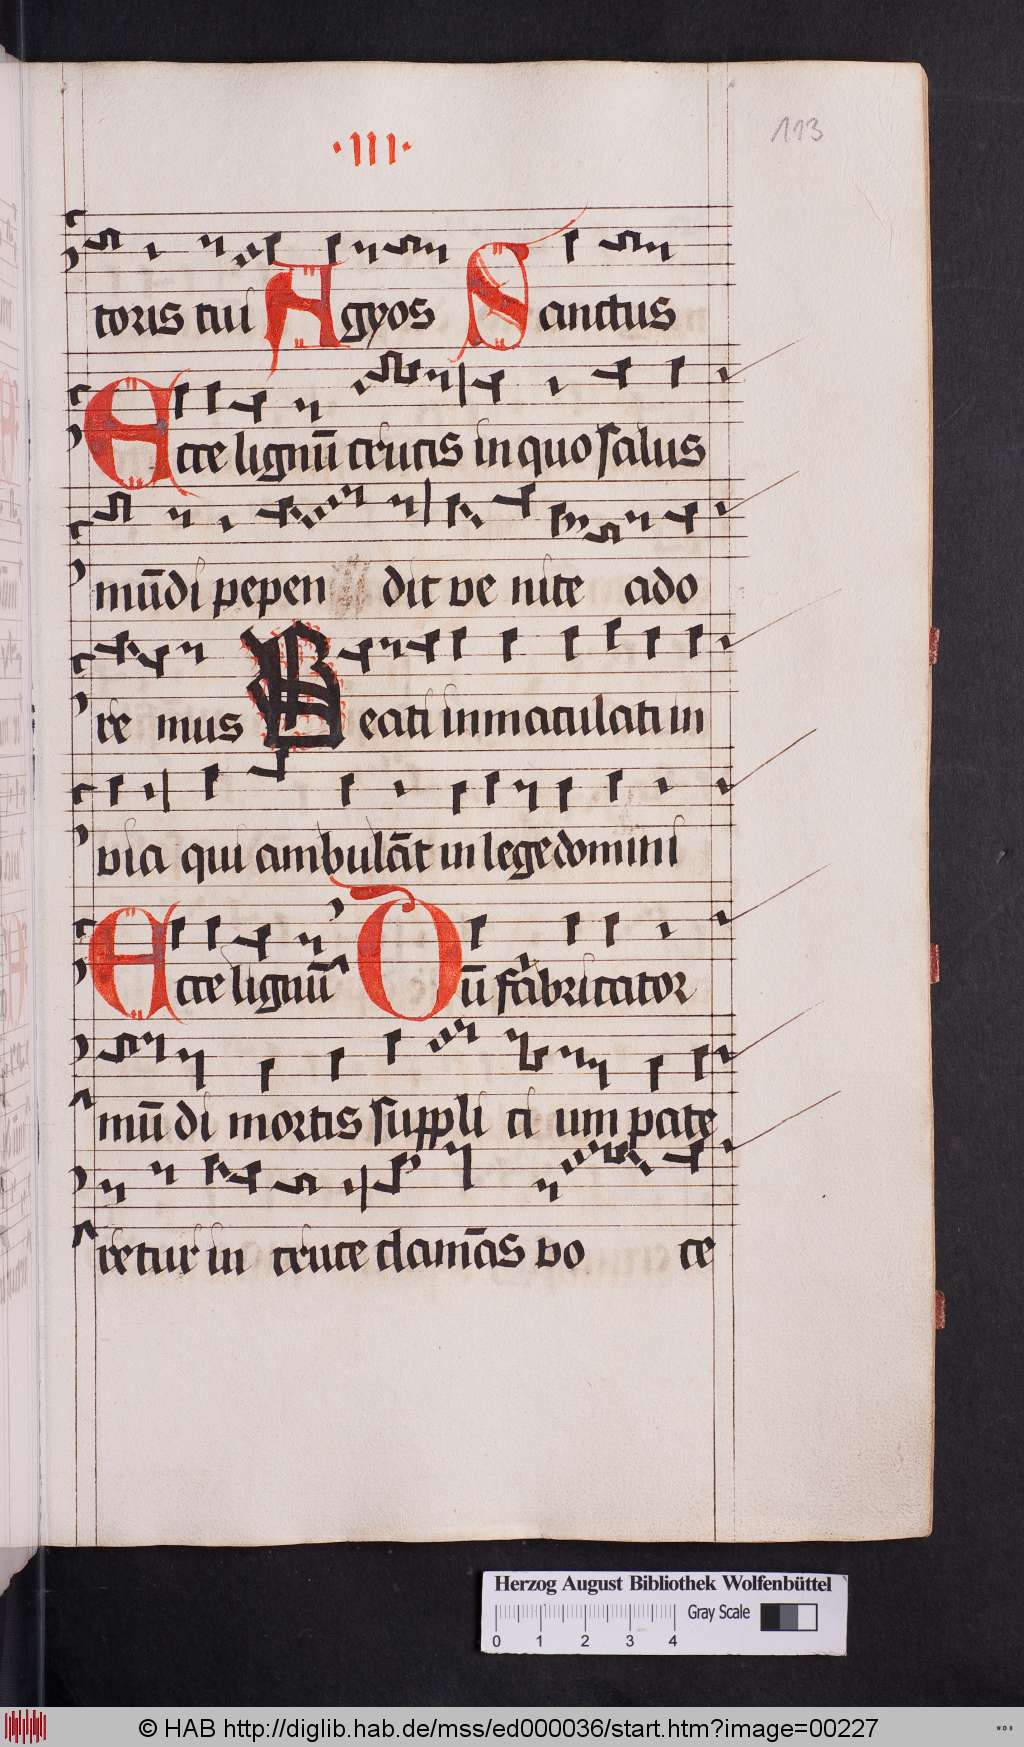 ·III·
113
toris tui Agyos Sanctus
Ecce lignū crucis in quo salus
mūdi pepen dit ve nite ado
re mus Beati inmaculati in
via qui ambulāt in lege domini
Ecce lignū Dū fabricator
mū di mortis suppli ci um pate
retur in cruce clamās vo ce
Herzog August Bibliothek Wolfenbüttel
Gray Scale
0 1 2 3 4
© HAB http://diglib.hab.de/mss/ed000036/start.htm?image=00227